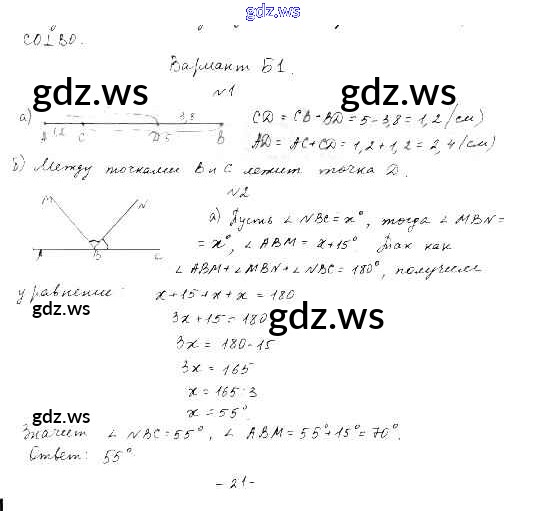 gdz.ws
CO⊥BO.
Вариант Б1.
№1
gdz.ws gdz.ws
а) A 1,2 C D 5 3,8 B CD = CB - BD = 5 - 3,8 = 1,2 (см)
AD = AC + CD = 1,2 + 1,2 = 2,4 (см)
б) Между точками B и C лежит точка D.
№2
M N а) Пусть ∠NBC = x°, тогда ∠MBN =
= x°, ∠ABM = x + 15° Так как
A B C ∠ABM + ∠MBN + ∠NBC = 180°, получаем
уравнение: x + 15 + x + x = 180
gdz.ws 3x + 15 = 180 gdz.ws
3x = 180 - 15
3x = 165
x = 165 : 3
x = 55°.
gdz.ws
Значит ∠NBC = 55°, ∠ABM = 55° + 15° = 70°.
Ответ: 55°
- 21 -